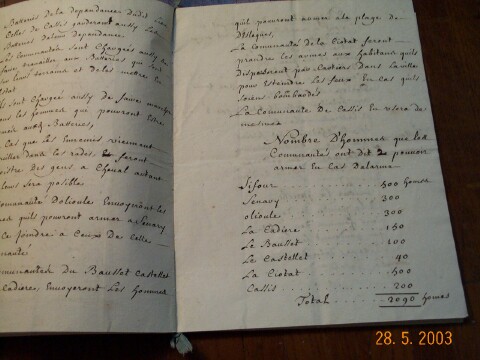 Batteries de la dependance dudit lieu
Celles de Cassis garderont aussy les
Batteries de leur dependance
Les Communautés sont Chargées aussy de
faire travailler aux Batteries qui sont
leur terraine et de les mettre en
Etat
sont Chargées aussy de faire marcher
tous les hommes que pouvront être
aux d. Batteries,
cas que les Ennemis viennent
mouiller dans les rades, feront
des gens a Cheval autant
leur sera posible
Communauté Dolioule Envoyeront les
qu'ils pouvront armer a Senary
se joindre a Ceux De Celle
Communauté
Communautés du Bausset Castellet
Cadiere, Envoyeront les hommes
qu'ils pouvront armer a la plage de
Desleques,
La Communauté de la Ciotat feront
prendre les armes aux habitants quils
disposeront par cartiers dans la ville
pour Esteindre les feux En Cas quils
soient bombardés
La Communauté De Cassis En usera de
mesme
Nombre D'hommes que les
Communautés ont dit pouvoir
armer En Cas Dalarme
Sifour 500 homes
Senary 300
olioule 300
La Cadiere 150
Le Bausset 100
Le Castellet 40
La Ciotat 500
Cassis 200
Total 2090 homes
28. 5. 2003